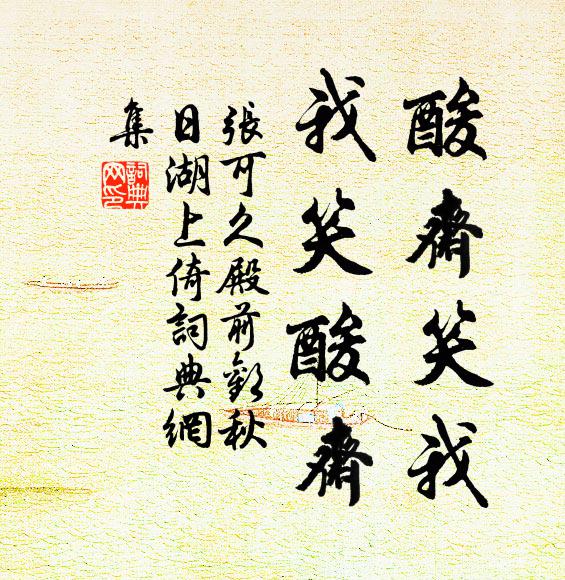 酸齋笑我
我笑酸齋
張可久殿前歡秋
日湖上倚詞典網
集
詞典
网印